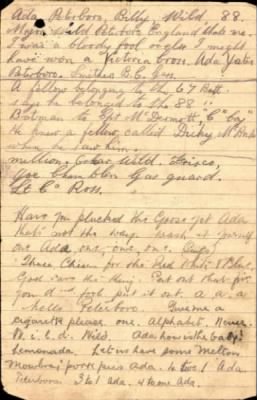 Ada Peterboro, Billy Wild, 88.
Major Wild Peterboro England that's me.
I was a bloody fool or else I might
have won a Victoria Cross. Ada Yates
Peterboro.
A fellow belonging to the 67 Batt.
says he belonged to the 88
Batman to Cpt McDermott, C Coy
He knew a fellow called Dicky
when he saw him.
million. Wild. Frisco,
Joe Chamblen Gas guard.
Lt Co Ross.
Have you plucked the Goose yet Ada
that's not the way wash it yourself
our Ada, our, our, our.
Three Cheers for the Red White & Blue.
God save the King. Put out that fire
you d— fool put it out. a. a. a
hello Peterboro. Give me a
cigarette please one. Alphabet. Never
W. i. l. d. Wild. Ada how's the baby?
Lemonade. Let us have some Melton
Mowbray pork pies Ada. to two 1 Ada
Peterboro. 3 to 1 Ada. 4 to one Ada.